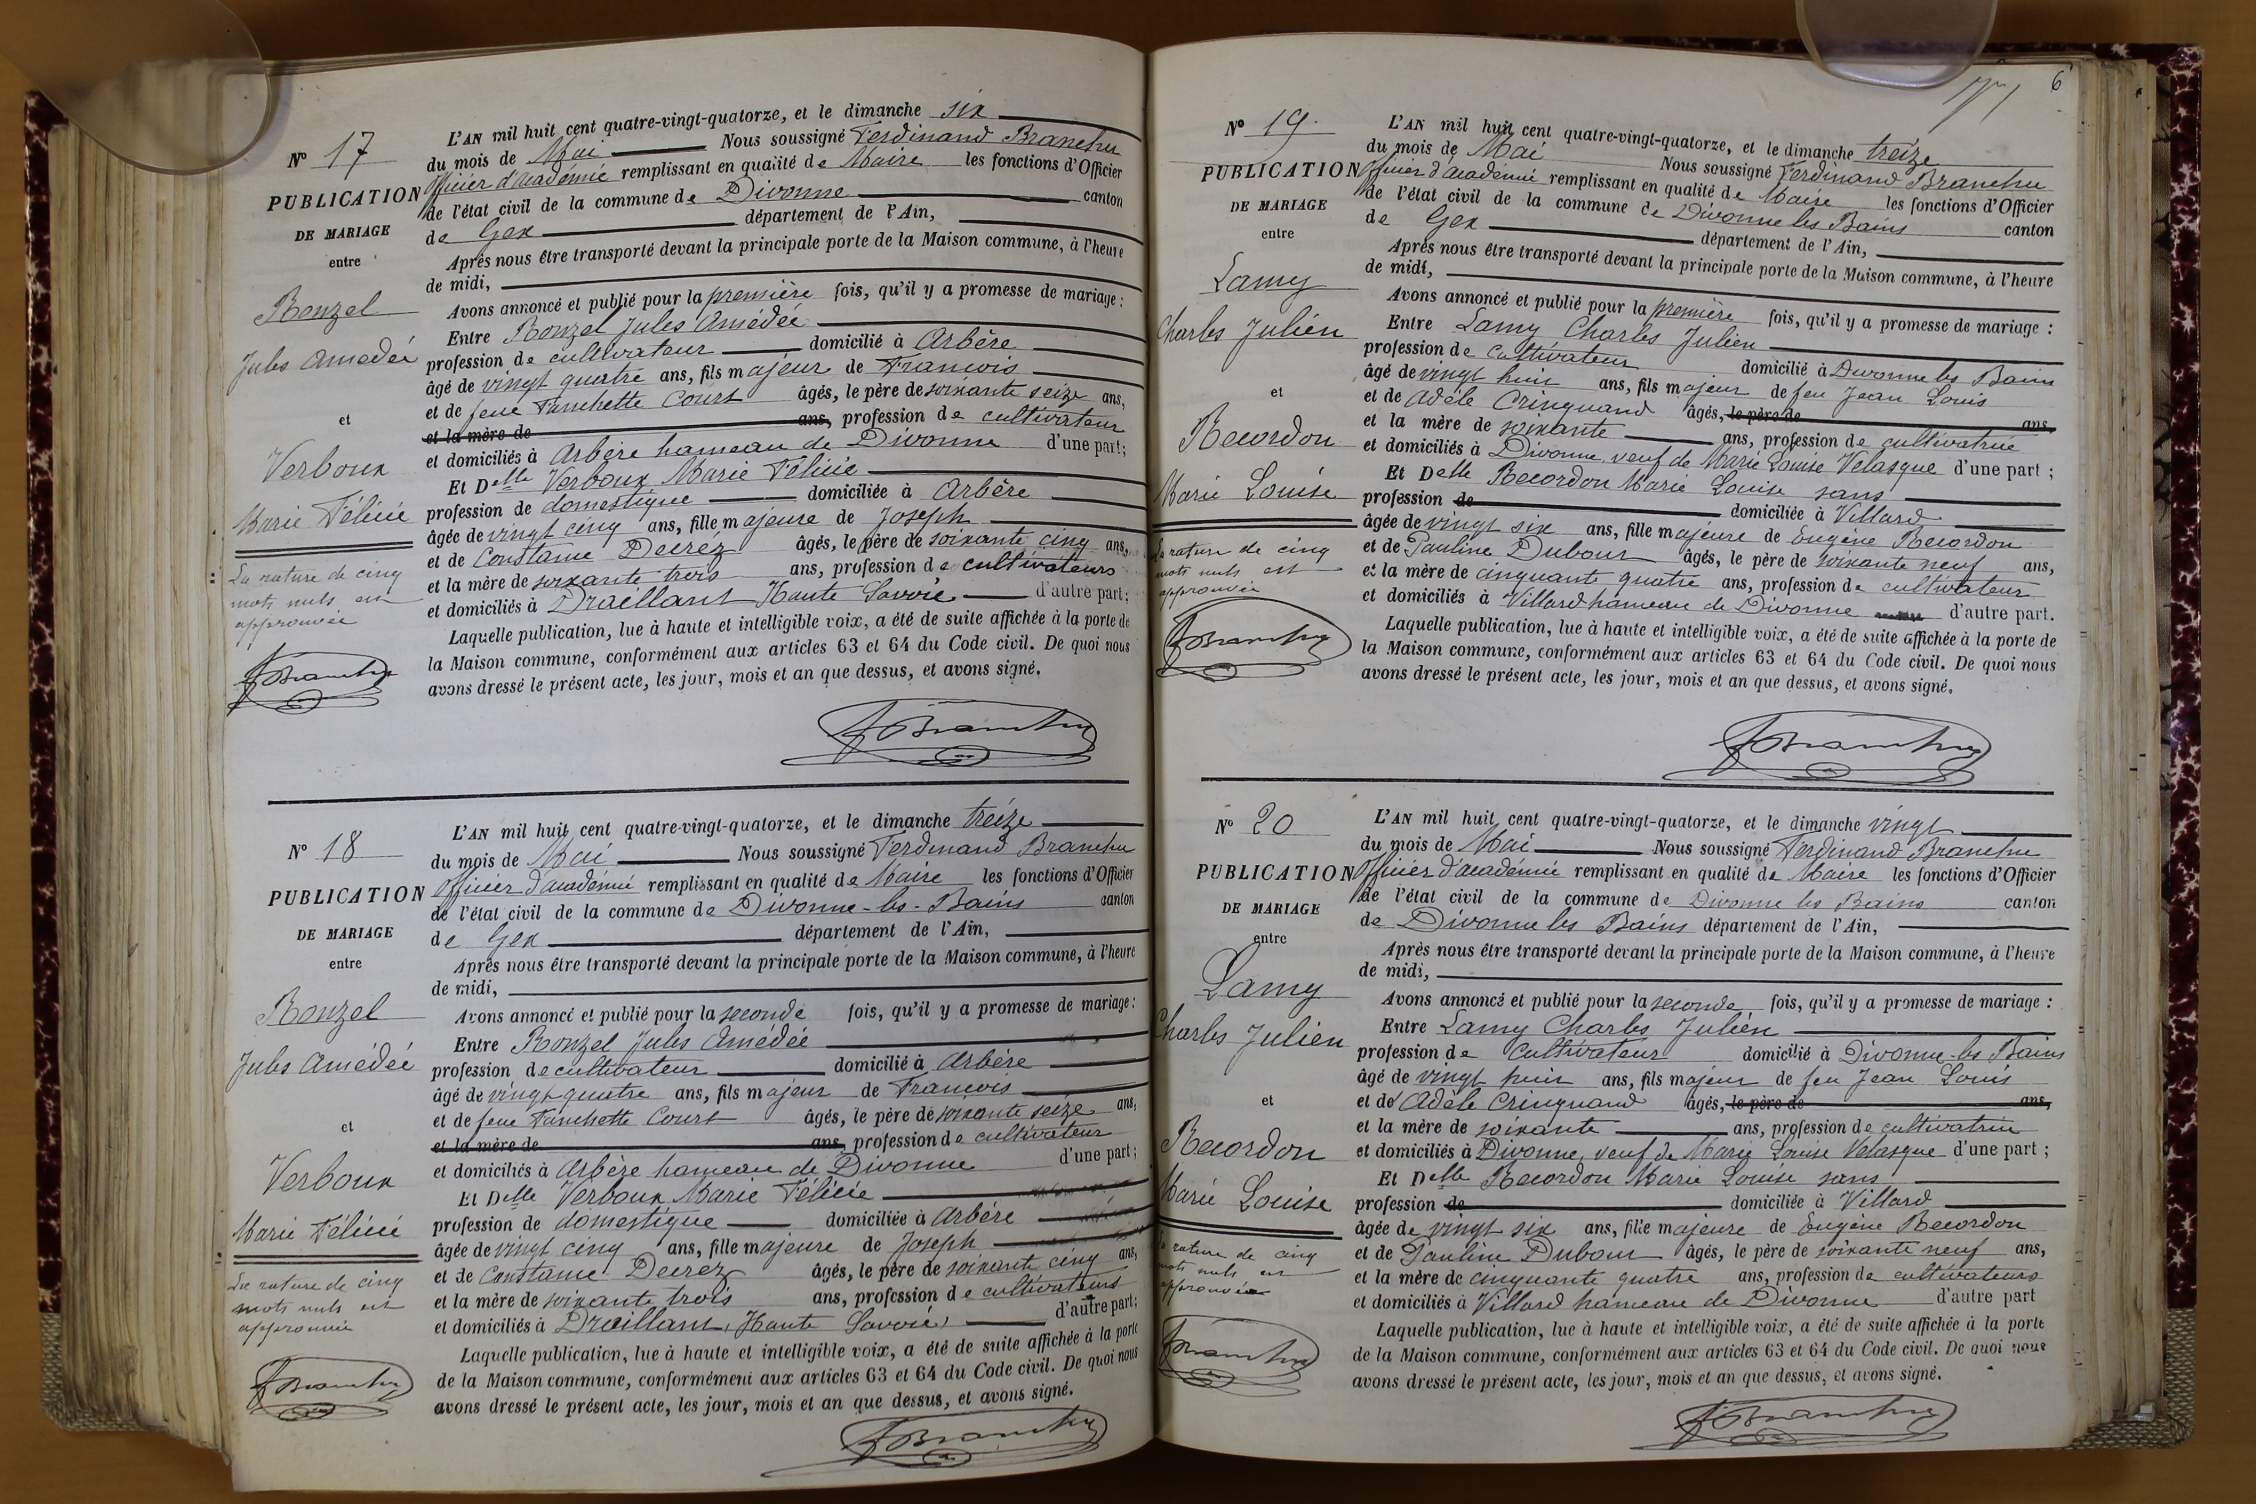 N° 17
PUBLICATION
DE MARIAGE
entre
Ronzel
Jules Amédée
et
Verboux
Marie Félicie
La rature de cinq
mots nuls est
approuvée
FBranchu
L'AN mil huit cent quatre-vingt-quatorze, et le dimanche six
du mois de Mai Nous soussigné Ferdinand Branchu
officier d'académie remplissant en qualité de Maire les fonctions d'Officier
de l'état civil de la commune de Divonne canton
de Gex département de l'Ain,
Après nous être transporté devant la principale porte de la Maison commune, à l'heure
de midi,
Avons annoncé et publié pour la première fois, qu'il y a promesse de mariage :
Entre Ronzel Jules Amédée
profession de cultivateur domicilié à Arbère
âgé de vingt quatre ans, fils majeur de Francois
et de feue Fanchette Court âgés, le père de soixante seize ans,
et la mère de ans, profession de cultivateur
et domiciliés à Arbère hameau de Divonne d'une part;
Et Delle Verboux Marie Félicie
profession de domestique domiciliée à Arbère
âgée de vingt cinq ans, fille majeure de Joseph
et de Constance Decréz âgés, le père de soixante cinq ans,
et la mère de soixante trois ans, profession de cultivateurs
et domiciliés à Draillant Haute Savoie d'autre part;
Laquelle publication, lue à haute et intelligible voix, a été de suite affichée à la porte de
la Maison commune, conformément aux articles 63 et 64 du Code civil. De quoi nous
avons dressé le présent acte, les jour, mois et an que dessus, et avons signé.
FBranchu
N° 18
PUBLICATION
DE MARIAGE
entre
Ronzel
Jules Amédée
et
Verboux
Marie Félicie
La rature de cinq
mots nuls est
approuvée
FBranchu
L'AN mil huit cent quatre-vingt-quatorze, et le dimanche treize
du mois de Mai Nous soussigné Ferdinand Branchu
officier d'académie remplissant en qualité de Maire les fonctions d'Officier
de l'état civil de la commune de Divonne-les-Bains canton
de Gex département de l'Ain,
Après nous être transporté devant la principale porte de la Maison commune, à l'heure
de midi,
Avons annoncé et publié pour la seconde fois, qu'il y a promesse de mariage :
Entre Ronzel Jules Amédée
profession de cultivateur domicilié à Arbère
âgé de vingt quatre ans, fils majeur de Francois
et de feue Fanchette Court âgés, le père de soixante seize ans,
et la mère de ans, profession de cultivateur
et domiciliés à Arbère hameau de Divonne d'une part;
Et Delle Verboux Marie Félicie
profession de domestique domiciliée à Arbère
âgée de vingt cinq ans, fille majeure de Joseph
et de Constance Decrez âgés, le père de soixante cinq ans,
et la mère de soixante trois ans, profession de cultivateurs
et domiciliés à Draillant, Haute Savoie, d'autre part;
Laquelle publication, lue à haute et intelligible voix, a été de suite affichée à la porte
de la Maison commune, conformément aux articles 63 et 64 du Code civil. De quoi nous
avons dressé le présent acte, les jour, mois et an que dessus, et avons signé.
FBranchu
6
N° 19
PUBLICATION
DE MARIAGE
entre
Lamy
Charles Julien
et
Recordon
Marie Louise
La rature de cinq
mots nuls est
approuvée
FBranchu
L'AN mil huit cent quatre-vingt-quatorze, et le dimanche treize
du mois de Mai Nous soussigné Ferdinand Branchu
officier d'académie remplissant en qualité de Maire les fonctions d'Officier
de l'état civil de la commune de Divonne les Bains canton
de Gex département de l'Ain,
Après nous être transporté devant la principale porte de la Maison commune, à l'heure
de midi,
Avons annoncé et publié pour la première fois, qu'il y a promesse de mariage :
Entre Lamy Charles Julien
profession de cultivateur domicilié à Divonne les Bains
âgé de vingt huit ans, fils majeur de feu Jean Louis
et de Adèle Cringuand âgés, le père de ans,
et la mère de soixante ans, profession de cultivatrice
et domiciliés à Divonne, veuf de Marie Louise Velasque d'une part ;
Et Delle Recordon Marie Louise sans
profession de domiciliée à Villard
âgée de vingt six ans, fille majeure de Eugène Recordon
et de Pauline Dubour âgés, le père de soixante neuf ans,
et la mère de cinquante quatre ans, profession de cultivateur
et domiciliés à Villard hameau de Divonne d'autre part.
Laquelle publication, lue à haute et intelligible voix, a été de suite affichée à la porte de
la Maison commune, conformément aux articles 63 et 64 du Code civil. De quoi nous
avons dressé le présent acte, les jour, mois et an que dessus, et avons signé.
FBranchu
N° 20
PUBLICATION
DE MARIAGE
entre
Lamy
Charles Julien
et
Recordon
Marie Louise
La rature de cinq
mots nuls est
approuvée
FBranchu
L'AN mil huit cent quatre-vingt-quatorze, et le dimanche vingt
du mois de Mai Nous soussigné Ferdinand Branchu
officier d'académie remplissant en qualité de Maire les fonctions d'Officier
de l'état civil de la commune de Divonne les Bains canton
de Divonne les Bains département de l'Ain,
Après nous être transporté devant la principale porte de la Maison commune, à l'heure
de midi,
Avons annoncé et publié pour la seconde fois, qu'il y a promesse de mariage :
Entre Lamy Charles Julien
profession de Cultivateur domicilié à Divonne-les Bains
âgé de vingt huit ans, fils majeur de feu Jean Louis
et de Adèle Cringuand âgés, le père de ans,
et la mère de soixante ans, profession de cultivatrice
et domiciliés à Divonne, veuf de Marie Louise Velasque d'une part ;
Et Delle Recordon Marie Louise sans
profession de domiciliée à Villard
âgée de vingt six ans, fille majeure de Eugène Recordon
et de Pauline Dubour âgés, le père de soixante neuf ans,
et la mère de cinquante quatre ans, profession de cultivateurs
et domiciliés à Villard hameau de Divonne d'autre part
Laquelle publication, lue à haute et intelligible voix, a été de suite affichée à la porte
de la Maison commune, conformément aux articles 63 et 64 du Code civil. De quoi nous
avons dressé le présent acte, les jour, mois et an que dessus, et avons signé.
FBranchu